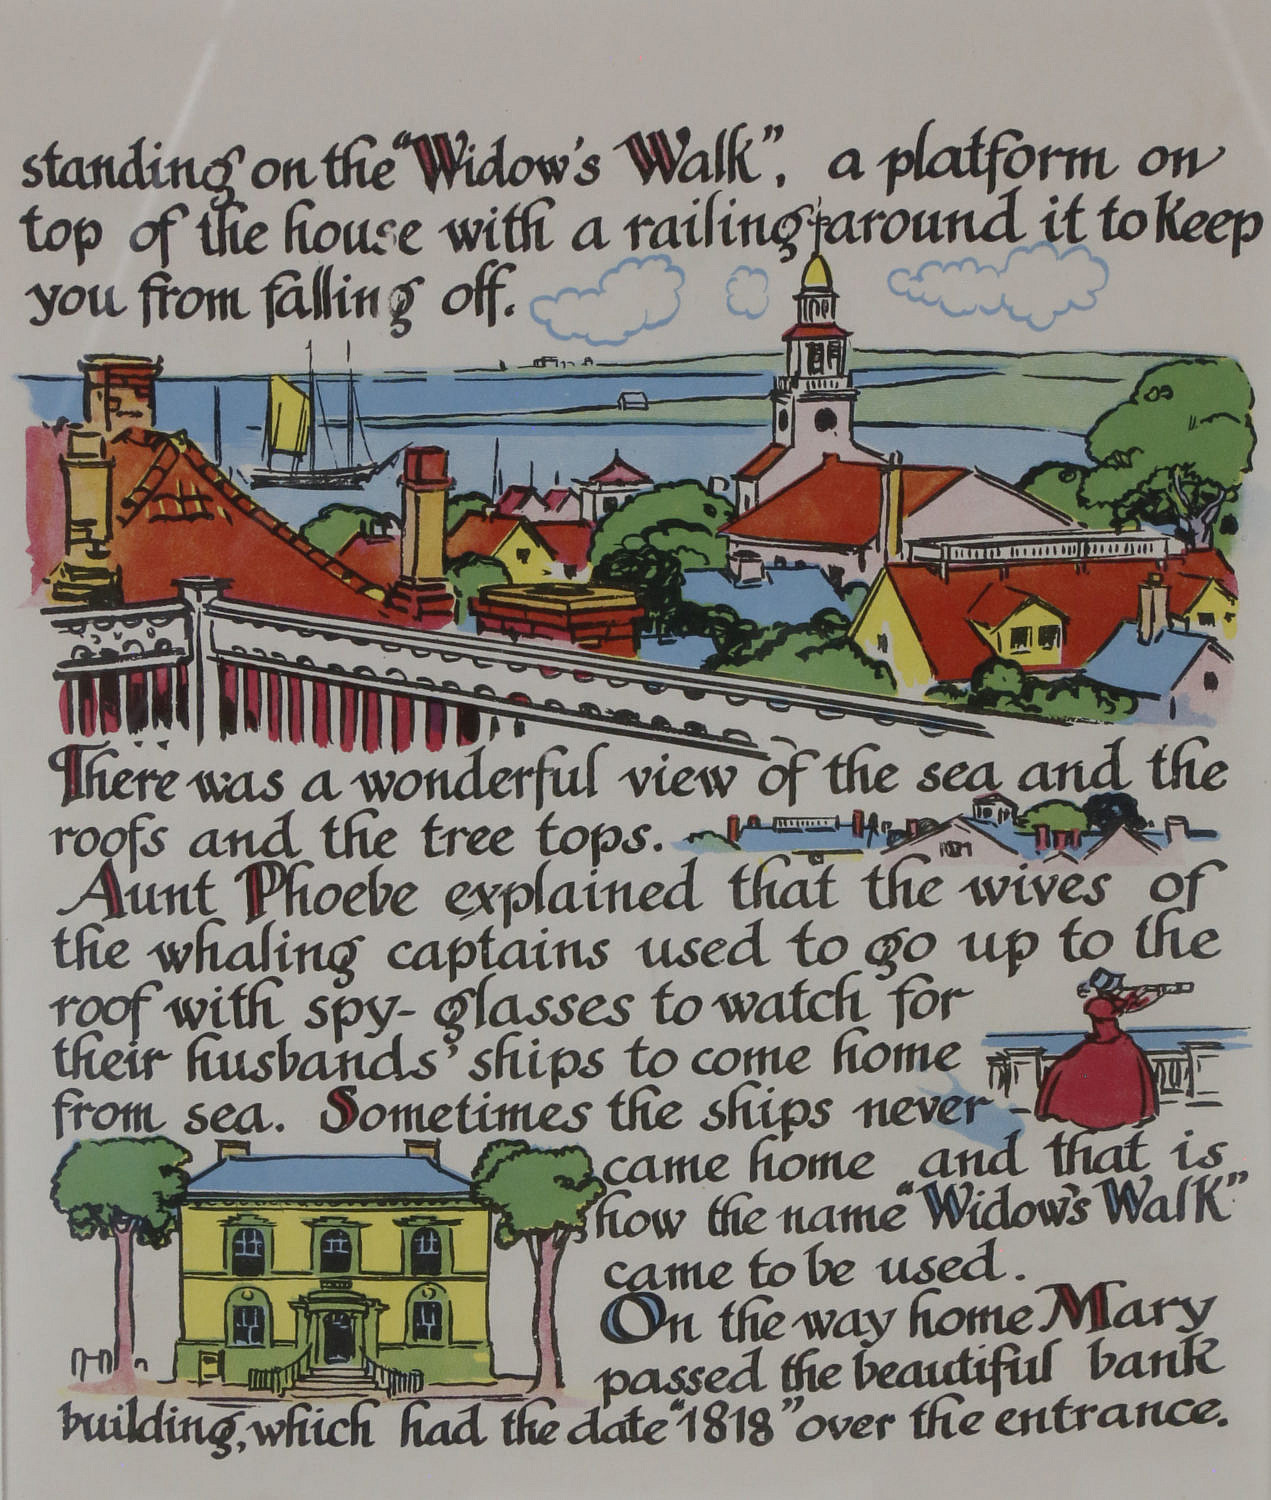 standing on the "Widow's Walk", a platform on
top of the house with a railing around it to keep
you from falling off.
There was a wonderful view of the sea and the
roofs and the tree tops.
Aunt Phoebe explained that the wives of
the whaling captains used to go up to the
roof with spy-glasses to watch for
their husbands' ships to come home
from sea. Sometimes the ships never
came home and that is
how the name "Widow's Walk"
came to be used.
On the way home Mary
passed the beautiful bank
building, which had the date "1818" over the entrance.